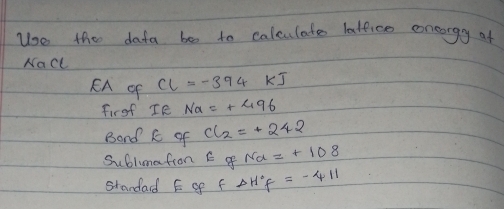 Use the data be to calculate lattice eneorgy of
NaCl
EA of Cl = -394 KJ
First IE Na = + 496
Bond E of Cl2 = + 242
Sublimation E of Na = + 108
Standard E of f ΔH°f = - 411